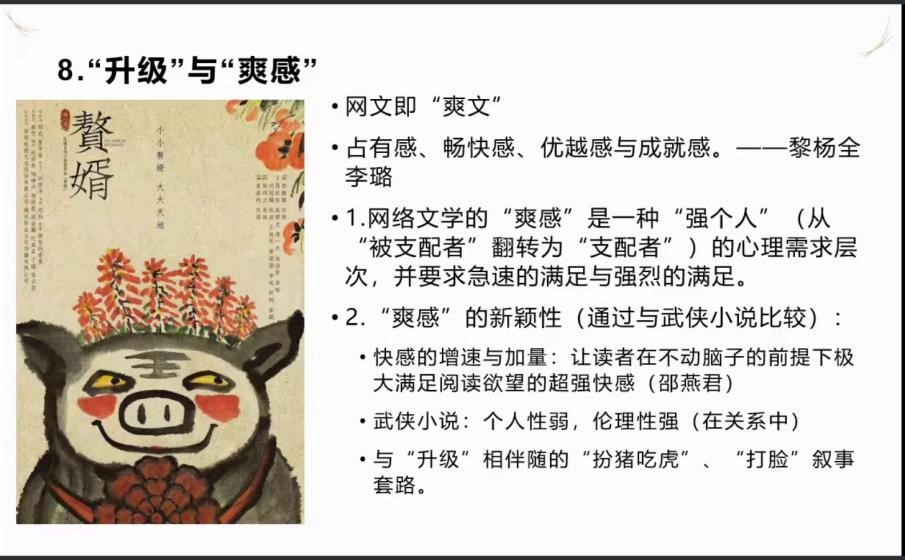 8.“升级”与“爽感”
赘婿
小小赘婿 大大天地
• 网文即“爽文”
• 占有感、畅快感、优越感与成就感。——黎杨全
李璐
• 1.网络文学的“爽感”是一种“强个人”（从
“被支配者”翻转为“支配者”）的心理需求层
次，并要求急速的满足与强烈的满足。
• 2.“爽感”的新颖性（通过与武侠小说比较）：
• 快感的增速与加量：让读者在不动脑子的前提下极
大满足阅读欲望的超强快感（邵燕君）
• 武侠小说：个人性弱，伦理性强（在关系中）
• 与“升级”相伴随的“扮猪吃虎”、“打脸”叙事
套路。